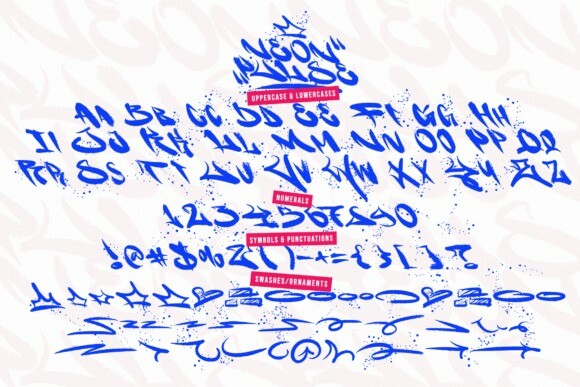 NEON
PULSE
UPPERCASE & LOWERCASES
AA BB CC DD EE FF GG HH
II JJ KK LL MM NN OO PP QQ
RR SS TT UU VV WW XX YY ZZ
NUMERALS
1234567890
SYMBOLS & PUNCTUATIONS
!@#$%&()-+={}[]?
SWASHES/ORNAMENTS